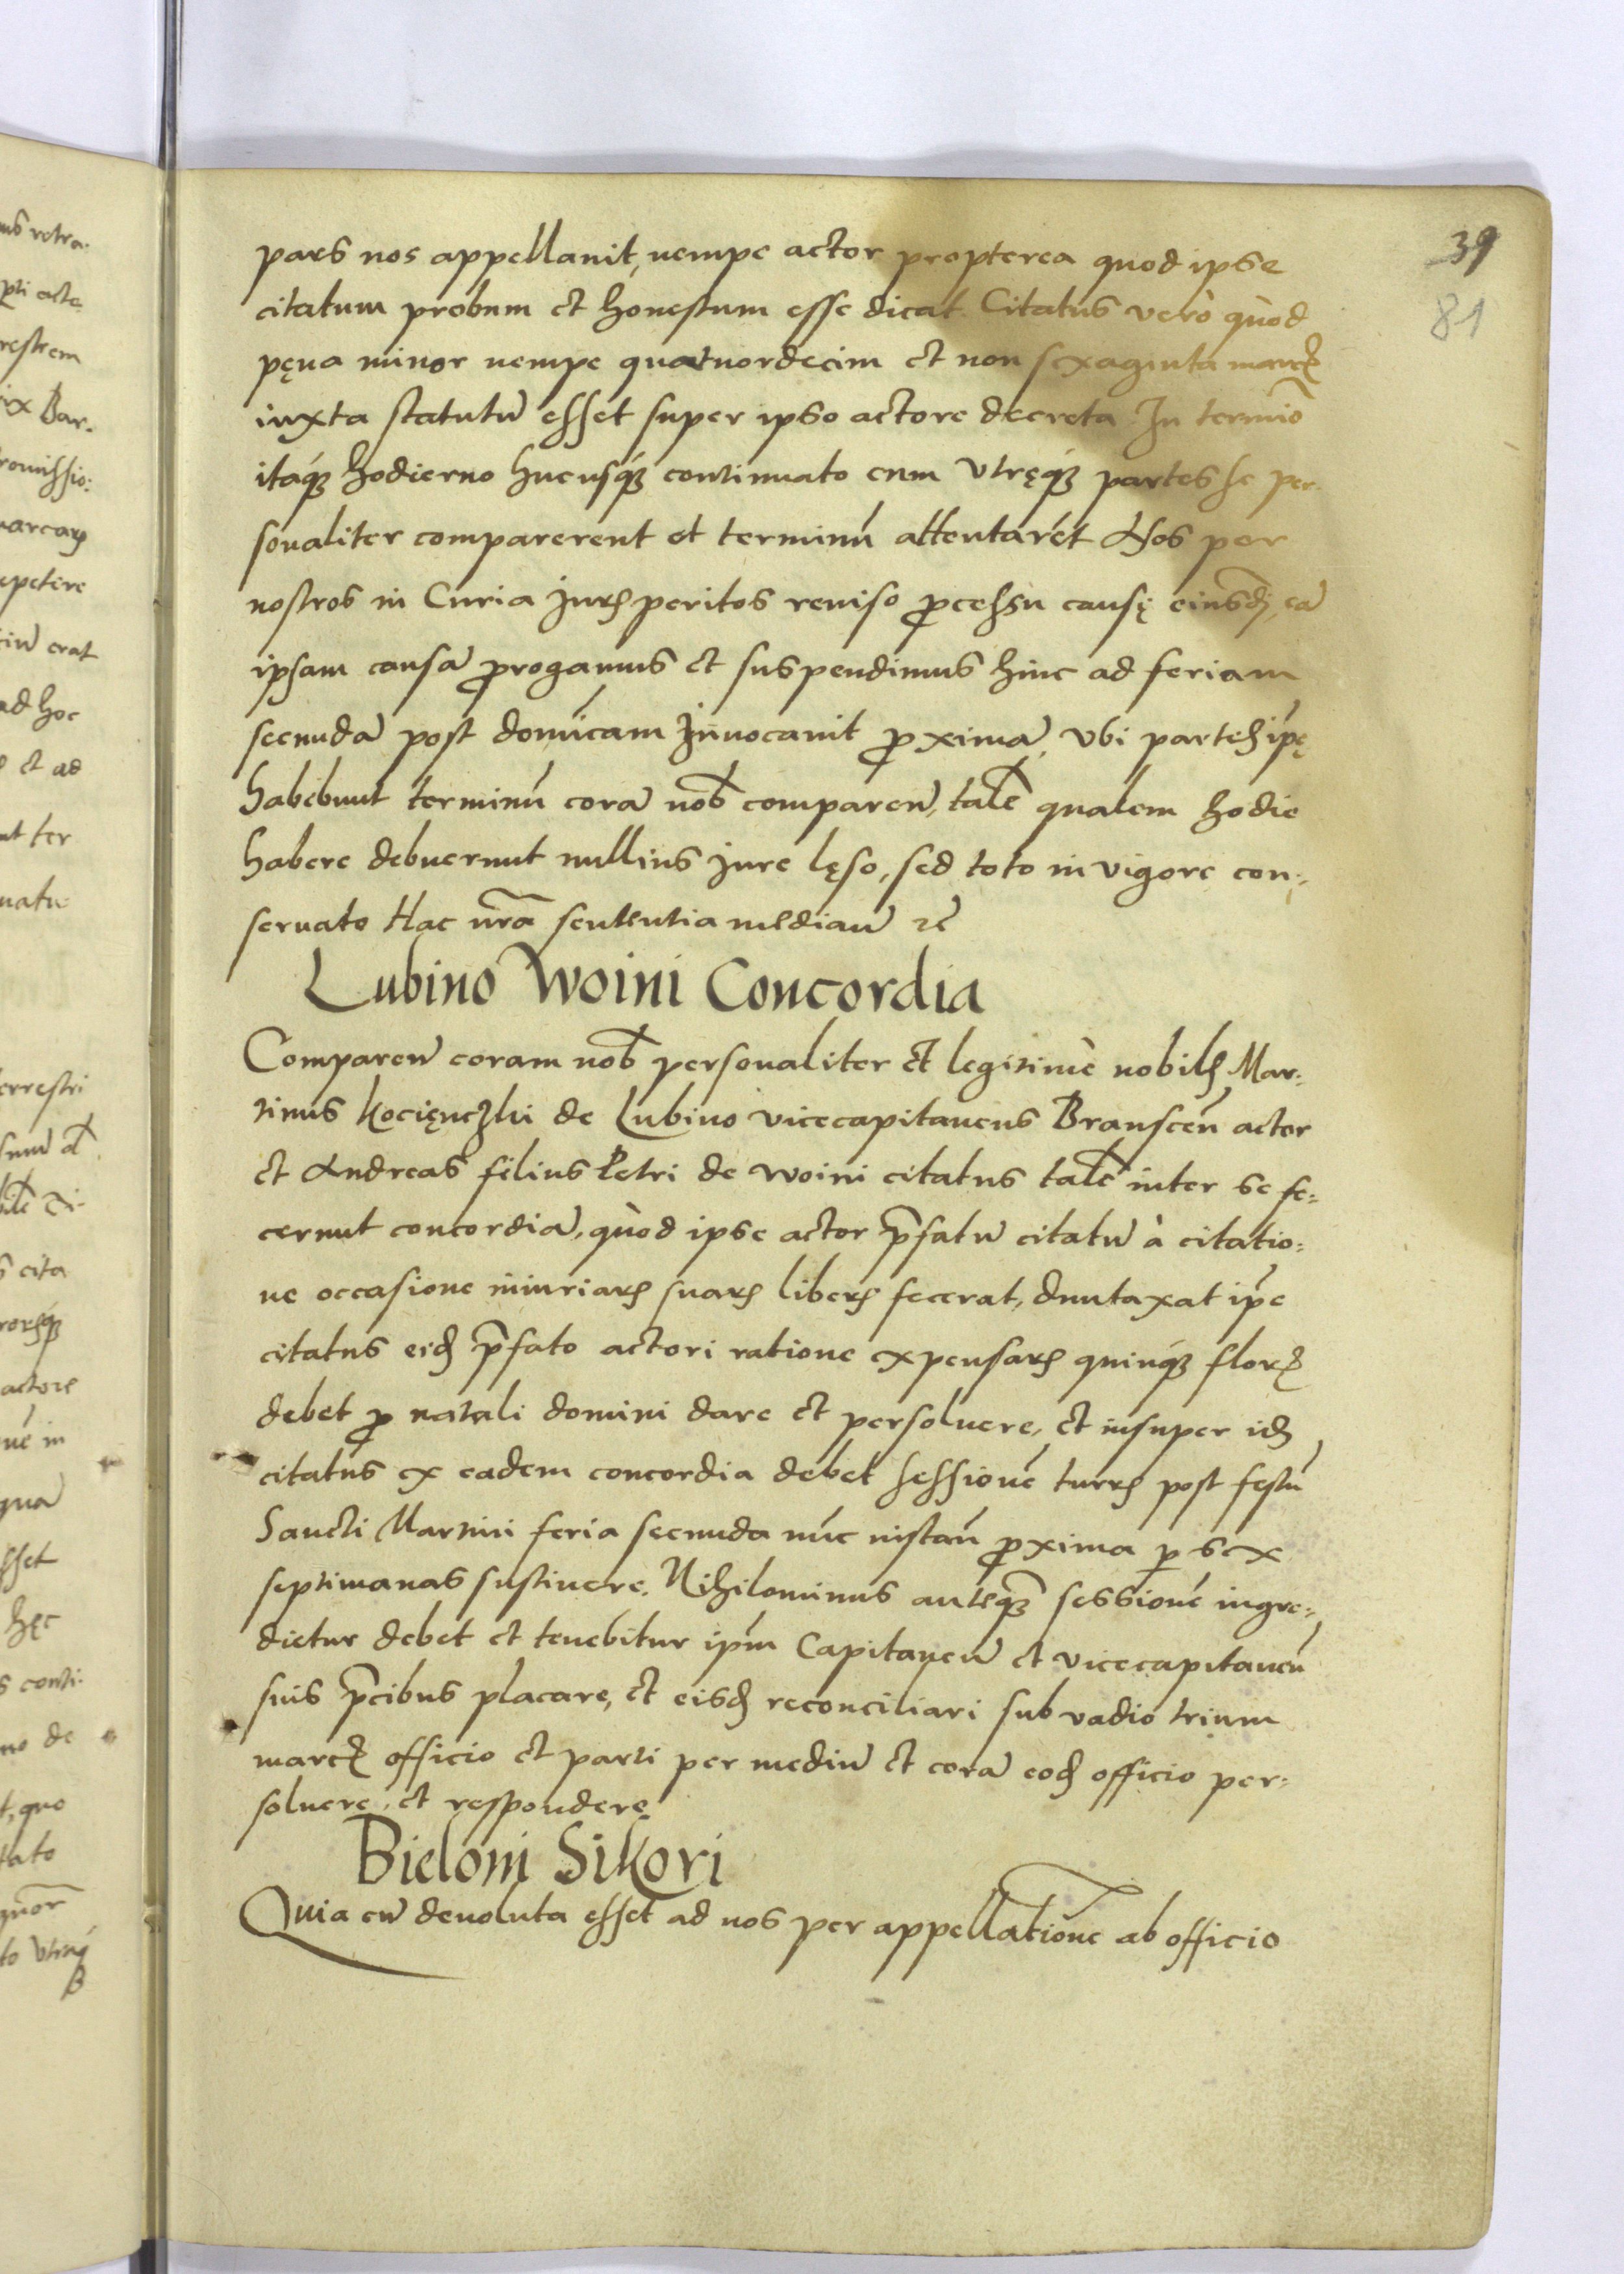 39
81
pars nos appellauit, nempe actor propterea quod ipse
citatum probum et honestum esse dicat Citatus verò quòd
pęna minor nempe quatuordecim et non sexaginta marcꝝ
iuxta statutū esset super ipso actore decreta In termīo
itaqꝫ hodierno hucusqꝫ continuato cum vtręqꝫ partes se per-
sonaliter comparerent et terminū attentarēt Nos per
nostros in Curia Jurꝭ peritos reuiso ꝓcessu causę eiusdꝫ, eā
ipsam causā ꝓrogamus et suspendimus hinc ad feriam
secundā post domīcam Inuocauit ꝓximā, vbi partes ip̄ę
habebunt terminū corā nob̄ comparen̄, talē qualem hodie
habere debuerunt nullius Jure lęso, sed toto in vigore con-
seruato Hac nr̄a sententia median̄ ꝛc̄
Lubino Woini Concordia
Comparen̄ coram nob̄ personaliter et legitimè nobilꝭ Mar-
tinus Kocięnczki de Lubino vicecapitaneus Branscen̄ actor
et Andreas filius Petri de Woini citatus talē inter se fe-
cerunt concordiā, quòd ipse actor p̄fatū citatū à citatio-
ne occasione iniuriarꝝ suarꝝ liberꝝ fecerat, duntaxat ip̄e
citatus eidꝫ p̄fato actori ratione expensarꝝ quinqꝫ florꝫ
debet ꝓ natali domini dare et persoluere, et insuper idꝫ
citatus ex eadem concordia debet sessionē turrꝭ post festū
Sancti Martini feria secunda nūc instan̄ ꝓxima ꝑ sex
septimanas sustinere. Nihilominus anteqꝫ sessionē ingre-
dietur debet et tenebitur ip̄m Capitaneū et vicecapitaneū
suis p̄cibus placare, et eisdꝫ reconciliari sub vadio trium
marcꝝ officio et parti per mediū et corā eodꝫ officio per-
soluere, et respondere
Bieloni Sikori
Quia cū deuoluta esset ad nos per appellationē ab officio